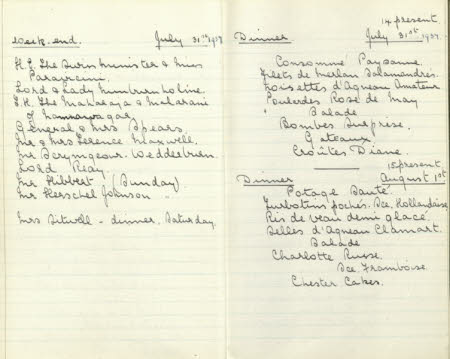 Week-end. July 31st 1937
H.E. The Swiss Minister & Mme
Paravicini.
Lord & Lady
H.H. The Maharaja & Maharani
of
General & Mrs Spears.
Mr & Mrs Terence Maxwell.
Mr Scrymgeour-Wedderburn.
Lord Reay.
Mr Hibbert (Sunday)
Mr Herschel Johnson "
Mrs Sitwell - dinner. Saturday.
14 present
Dinner July 31st 1937.
Consommé Paysanne.
Filets de Merlan Salamandres.
Noisettes d'Agneau Amateur
Poulardes Rose de May
Salade
Bombes Surprise.
Gateaux.
Croûtes Diane.
15 present
Dinner August 1st
Potage Santé
Turbotins pochés. Sce. Hollandaise
Ris de veau demi glacé.
Selles d'Agneau Clamart.
Salade
Charlotte Russe.
Sce Framboise.
Chester Cakes.